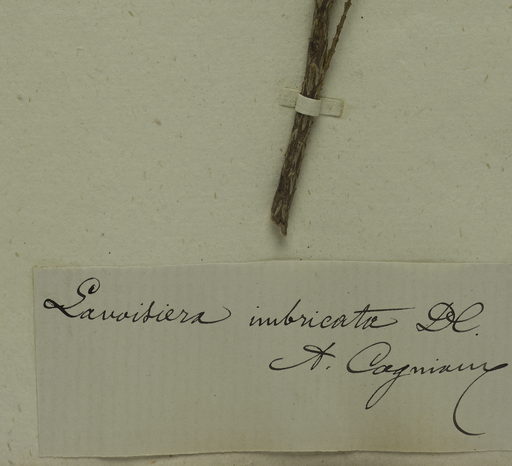 Lavoisiera imbricata DC.
A. Cogniaux